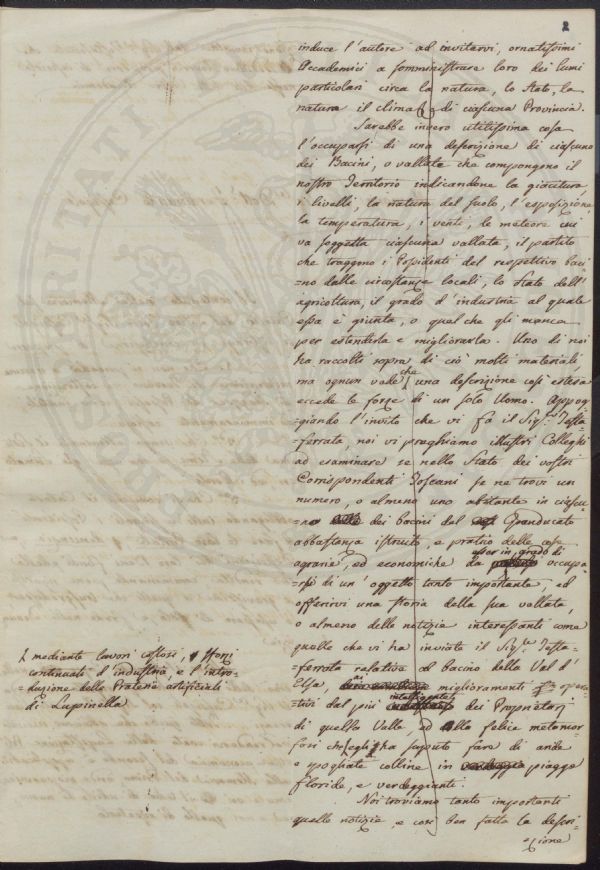 2
induce l'autore ad invitarvi, ornatissimi
Accademici a somministrare loro dei lumi
particolari circa la natura, lo stato, la
natura il clima di ciascuna Provincia.
Sarebbe invero utilissima cosa
l'occuparsi di una descrizione di ciascuno
dei Bacini, o vallate che compongono il
nostro Territorio indicandone la giacitura
i livelli, la natura del suolo, l'esposizione,
la temperatura, i venti, le meteore cui
va soggetta ciascuna vallata, il partito
che traggono i Residenti del respettivo baci
=no dalle circostanze locali, lo stato dell'
agricoltura, il grado d'industria al quale
essa è giunta, o quel che gli manca
per estenderla e migliorarla. Uno di noi
ha raccolti sopra di ciò molti materiali,
ma ognun vede che una descrizione così estesa
eccede le forze di un solo Uomo. Appog
=giando l'invito che vi fa il Sigr. Testa
=ferrata, noi vi preghiamo illustri Colleghi
ad esaminare se nello stato dei vostri
Corrispondenti Toscani se ne trovi un
numero, o almeno uno abitante in ciascu
=no dei bacini del Granducato
abbastanza istruito, e pratico delle cose
agrarie, ed economiche da esser in grado di occupa
=rsi di un'oggetto tanto importante, ed
offerirvi una storia della sua vallata,
o almeno delle notizie interessanti come
quelle che vi ha inviate il Sigre Testa=
=ferrata relative al bacino della Val d'
Elsa, ai miglioramenti opera
=tivi dal più intelligente dei Proprietarj
di quella Valle, ed alla felice metamor
fosi ch'egli ha saputo fare di aride
e spogliate colline in piagge
floride, e verdeggianti.
mediante lavori costosi, sforzi
continuati d'industria e l'intro=
=duzione delle Praterie artificiali
di Lupinella
Noi troviamo tanto importanti
quelle notizie, e così ben fatta la descri
=zione